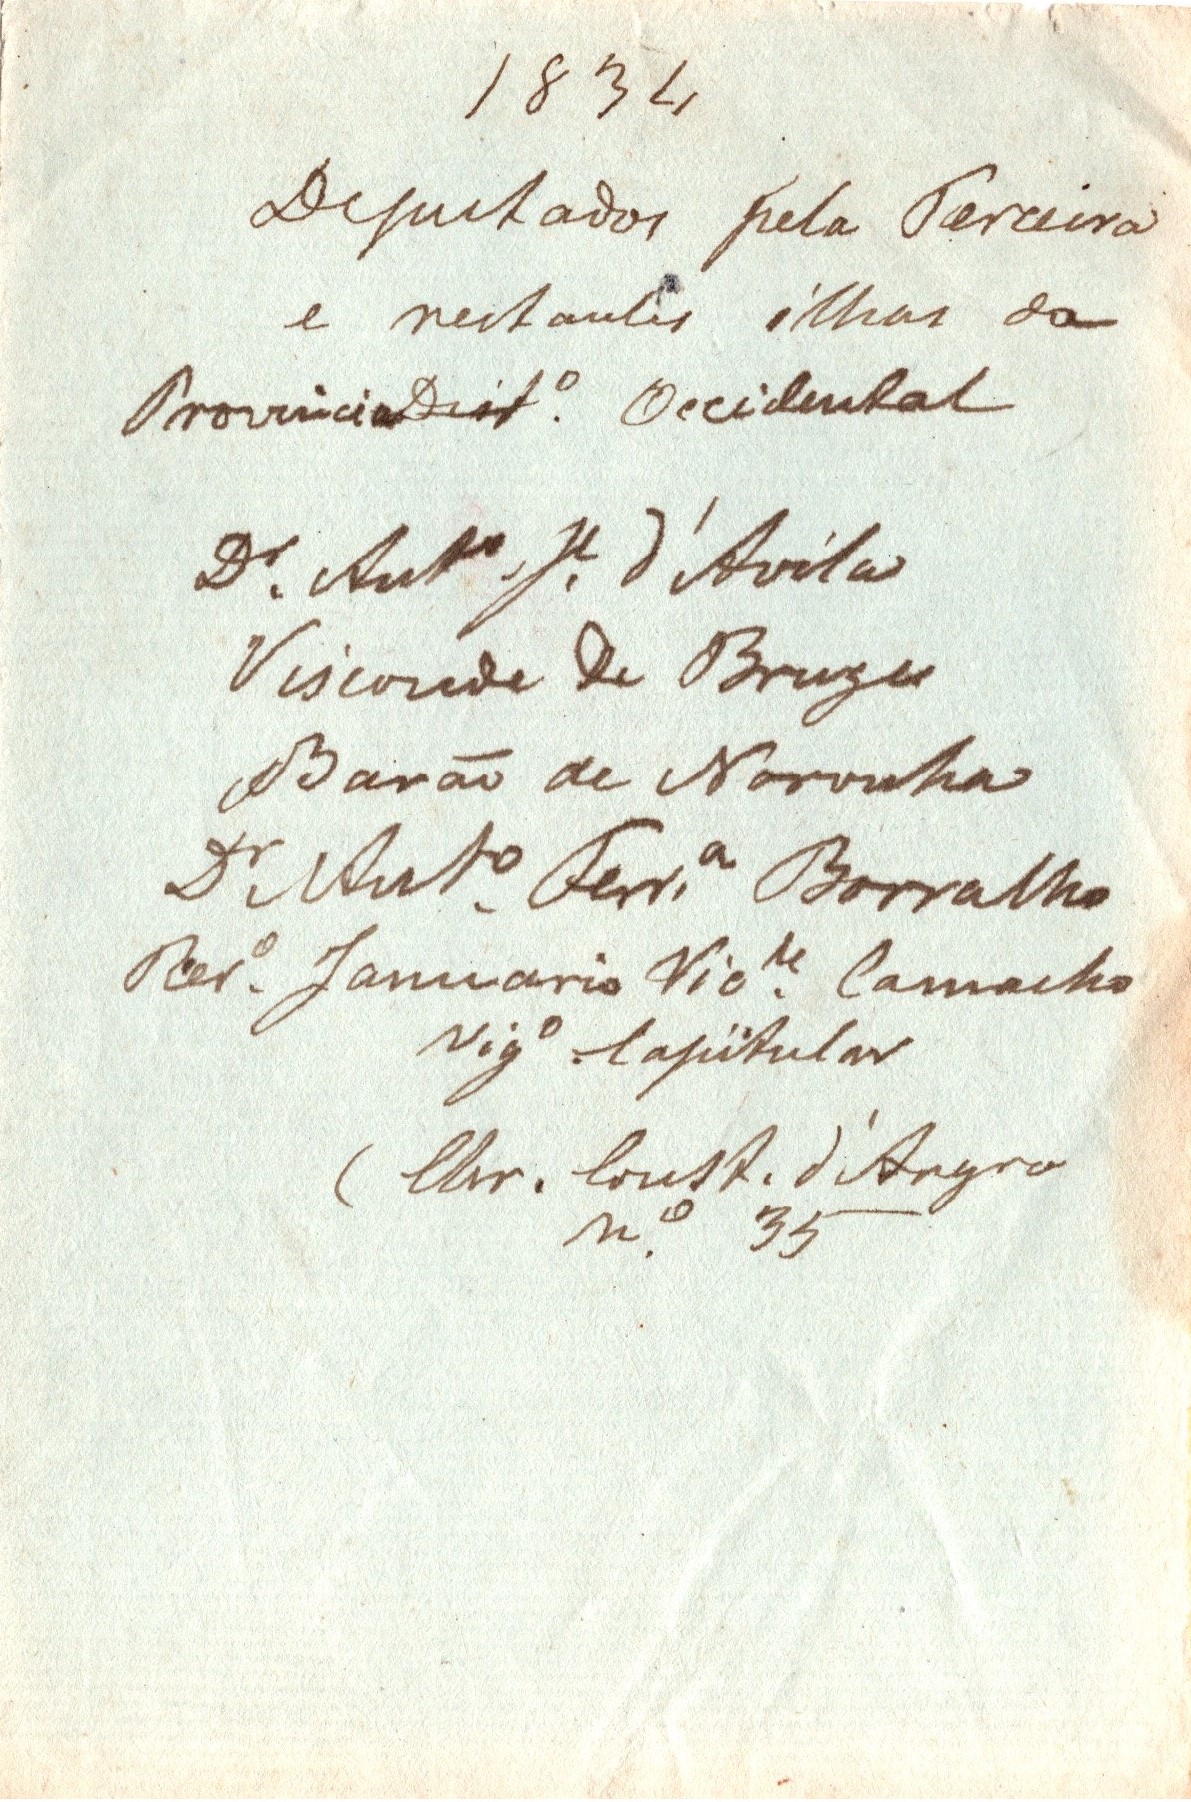 1834
Deputados pela Terceira
e restantes ilhas da
Provincia Dist.º Occidental
Dr. Ant.º Je. d'Avila
Visconde de Bruges
Barão de Noronha
Dr. Ant.º Ferr.ª Borralho
Januario Vic.te Camacho
Vig.º Capitular
(Chr. Const. d'Angra
n.º 35